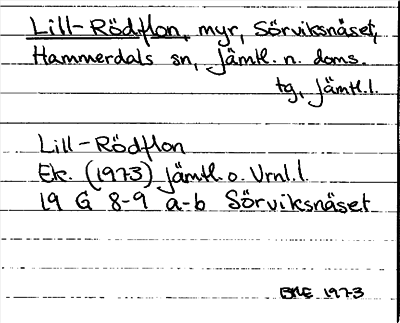 Lill-Rödflon, myr, Sörviksnäset,
Hammerdals sn, Jämtl. n. doms.
tg, Jämtl.l.
Lill-Rödflon
Ek. (1973) Jämtl. o. Vrnl.l.
19 G 8-9 a-b Sörviksnäset
BME 1973